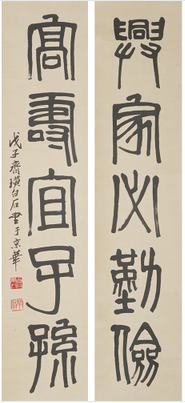 興家必勤儉
高壽宜子孫
戊子齊璜白石書于京華